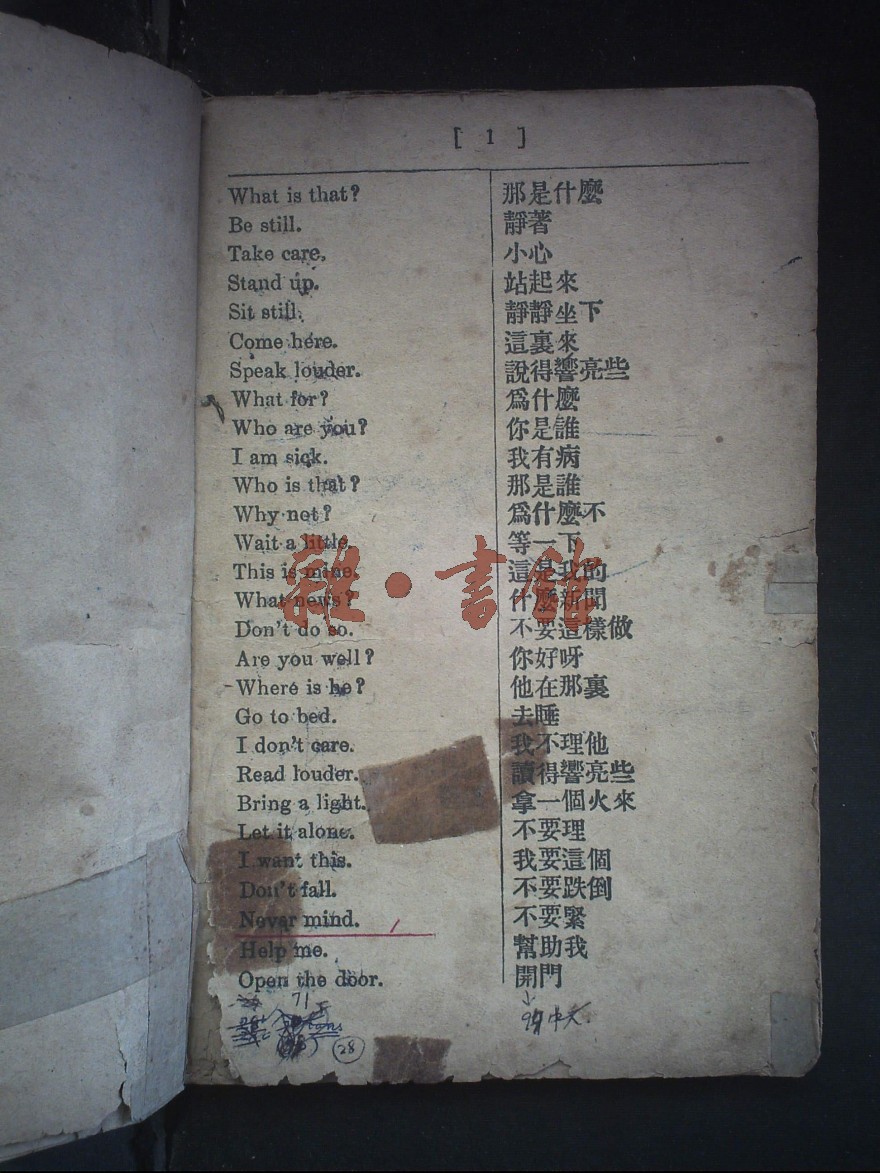 [ 1 ]
What is that? 那是什麼
Be still. 靜著
Take care. 小心
Stand up. 站起來
Sit still. 靜靜坐下
Come here. 這裏來
Speak louder. 說得響亮些
What for? 爲什麼
Who are you? 你是誰
I am sick. 我有病
Who is that? 那是誰
Why not? 爲什麼不
Wait a little. 等一下
This is mine. 這是我的
What news? 什麼新聞
Don't do so. 不要這樣做
Are you well? 你好呀
Where is he? 他在那裏
Go to bed. 去睡
I don't care. 我不理他
Read louder. 讀得響亮些
Bring a light. 拿一個火來
Let it alone. 不要理
I want this. 我要這個
Don't fall. 不要跌倒
Never mind. 不要緊
Help me. 幫助我
Open the door. 開門
71
28
雜·書館